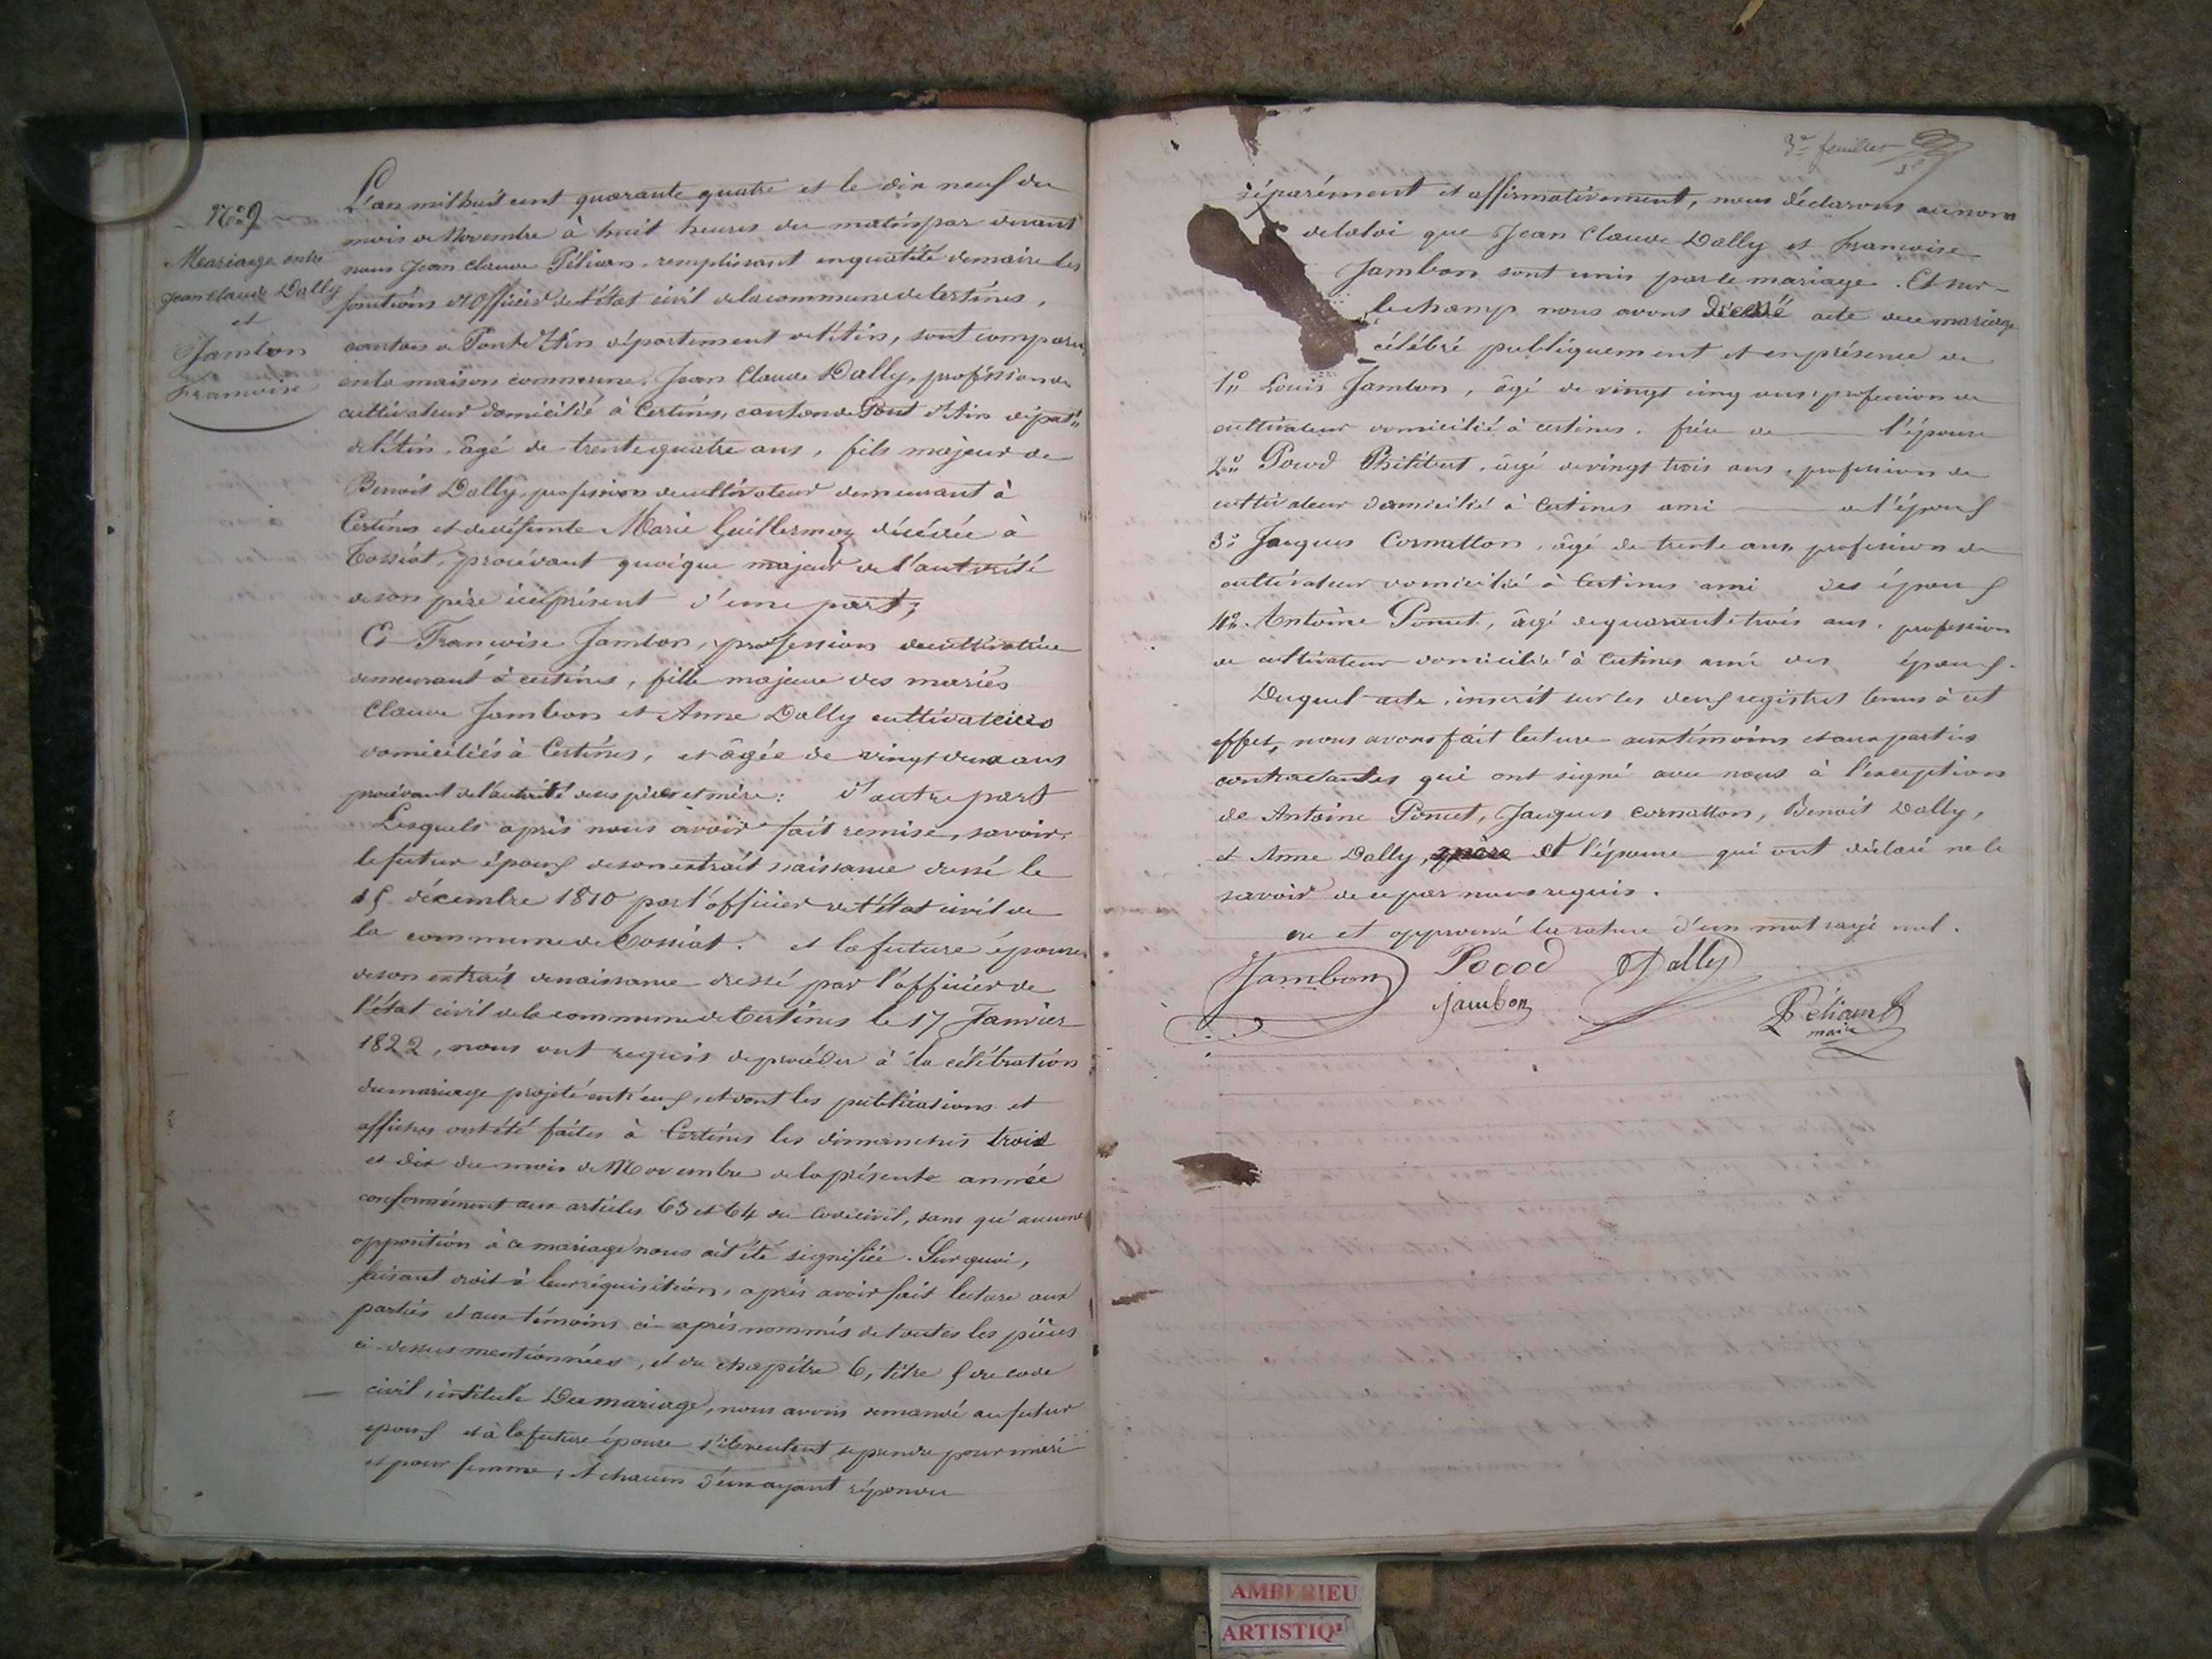 N.º 9
Mariage entre
Jean Claude Dally
et
Jambon
Francoise
L'an mil huit cent quarante quatre et le dix neuf du
mois de Novembre à huit heures du matin par devant
nous Jean Claude Pélican, remplissant en qualité de maire les
fonctions d'Officier de l'état civil de la commune de Certines,
canton de Pont d'Ain département de l'Ain, sont comparu
en la maison commune, Jean Claude Dally, profession de
cultivateur domicilié à Certines, canton de Pont d'Ain dépt
de l'Ain, âgé de trente quatre ans, fils majeur de
Benoit Dally, profession de cultivateur demeurant à
Certines et de défunte Marie Guillermoz décédée à
Tossiat, procédant quoique majeur de l'autorité
de son père ici présent d'une part;
Et Francoise Jambon, profession de cultivatrice
demeurant à certines, fille majeure des mariés
Claude Jambon et Anne Dally cultivateurs
domiciliés à Certines, et âgée de vingt deux ans
procédant de l'autorité de ses père et mère: d'autre part
Lesquels après nous avoir fait remise, savoir,
le futur époux de son extrait naissance dressé le
15 décembre 1810 par l'officier de l'état civil de
la commune de Tossiat. et la future épouse
de son extrait de naissance dressé par l'officier de
l'état civil de la commune de Certines le 17 Janvier
1822, nous ont requis de procéder à la célébration
du mariage projeté entr'eux, et dont les publications et
affiches ont été faites à Certines les dimanches trois
et dix du mois de Novembre de la présente année
conformément aux articles 63 et 64 du Code civil, sans qu'aucune
opposition à ce mariage nous ait été signifiée. Sur quoi,
faisant droit à leur réquisition, après avoir fait lecture aux
parties et aux témoins ci-après nommés de toutes les pièces
ci-dessus mentionnées, et du chapitre 6, titre 5 du code
civil intitulé Du mariage, nous avons demandé au futur
époux et à la future épouse s'ils veulent se prendre pour mari
et pour femme; et chacun d'eux ayant répondu
3e feuillet
séparément et affirmativement, nous déclarons au nom
de la loi que Jean Claude Dally et Francoise
Jambon sont unis par le mariage. Et sur-
le champ nous avons dressé acte du mariage
célébré publiquement et en présence de
1º Louis Jambon, âgé de vingt cinq ans, profession de
cultivateur domicilié à certines. frère de l'épouse
2º Pocod Philibert, âgé de vingt trois ans, profession de
cultivateur domicilié à Certines ami de l'époux
3º Jacques Cornatton, âgé de trente ans profession de
cultivateur domicilié à Certines ami des époux
4º Antoine Poncet, âgé de quarante trois ans, profession
de cultivateur domicilié à Certines ami des époux.
Duquel acte, inscrit sur les deux registres tenus à cet
effet, nous avons fait lecture aux témoins et aux parties
contractantes qui ont signé avec nous à l'exception
de Antoine Poncet, Jacques Cornatton, Benoit Dally,
et Anne Dally, et l'épouse qui ont déclaré ne le
savoir de ce par nous requis.
et approuvé la rature d'un mot rayé nul.
Jambon Pocod Dally
Jambon Pélican
maire
AMBERIEU
ARTISTIQ